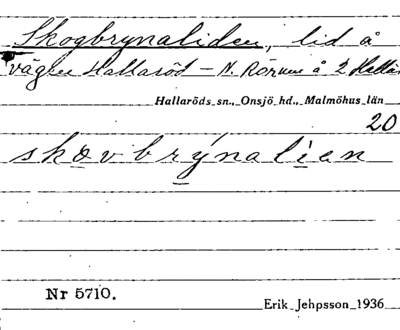 Skogbrynaliden, lid å
vägen Hallaröd – N. Rörum å 2 Hallar
Hallaröds sn., Onsjö hd., Malmöhus län
20
skovbrýnalien
Nr 5710.
Erik Jehpsson 1936